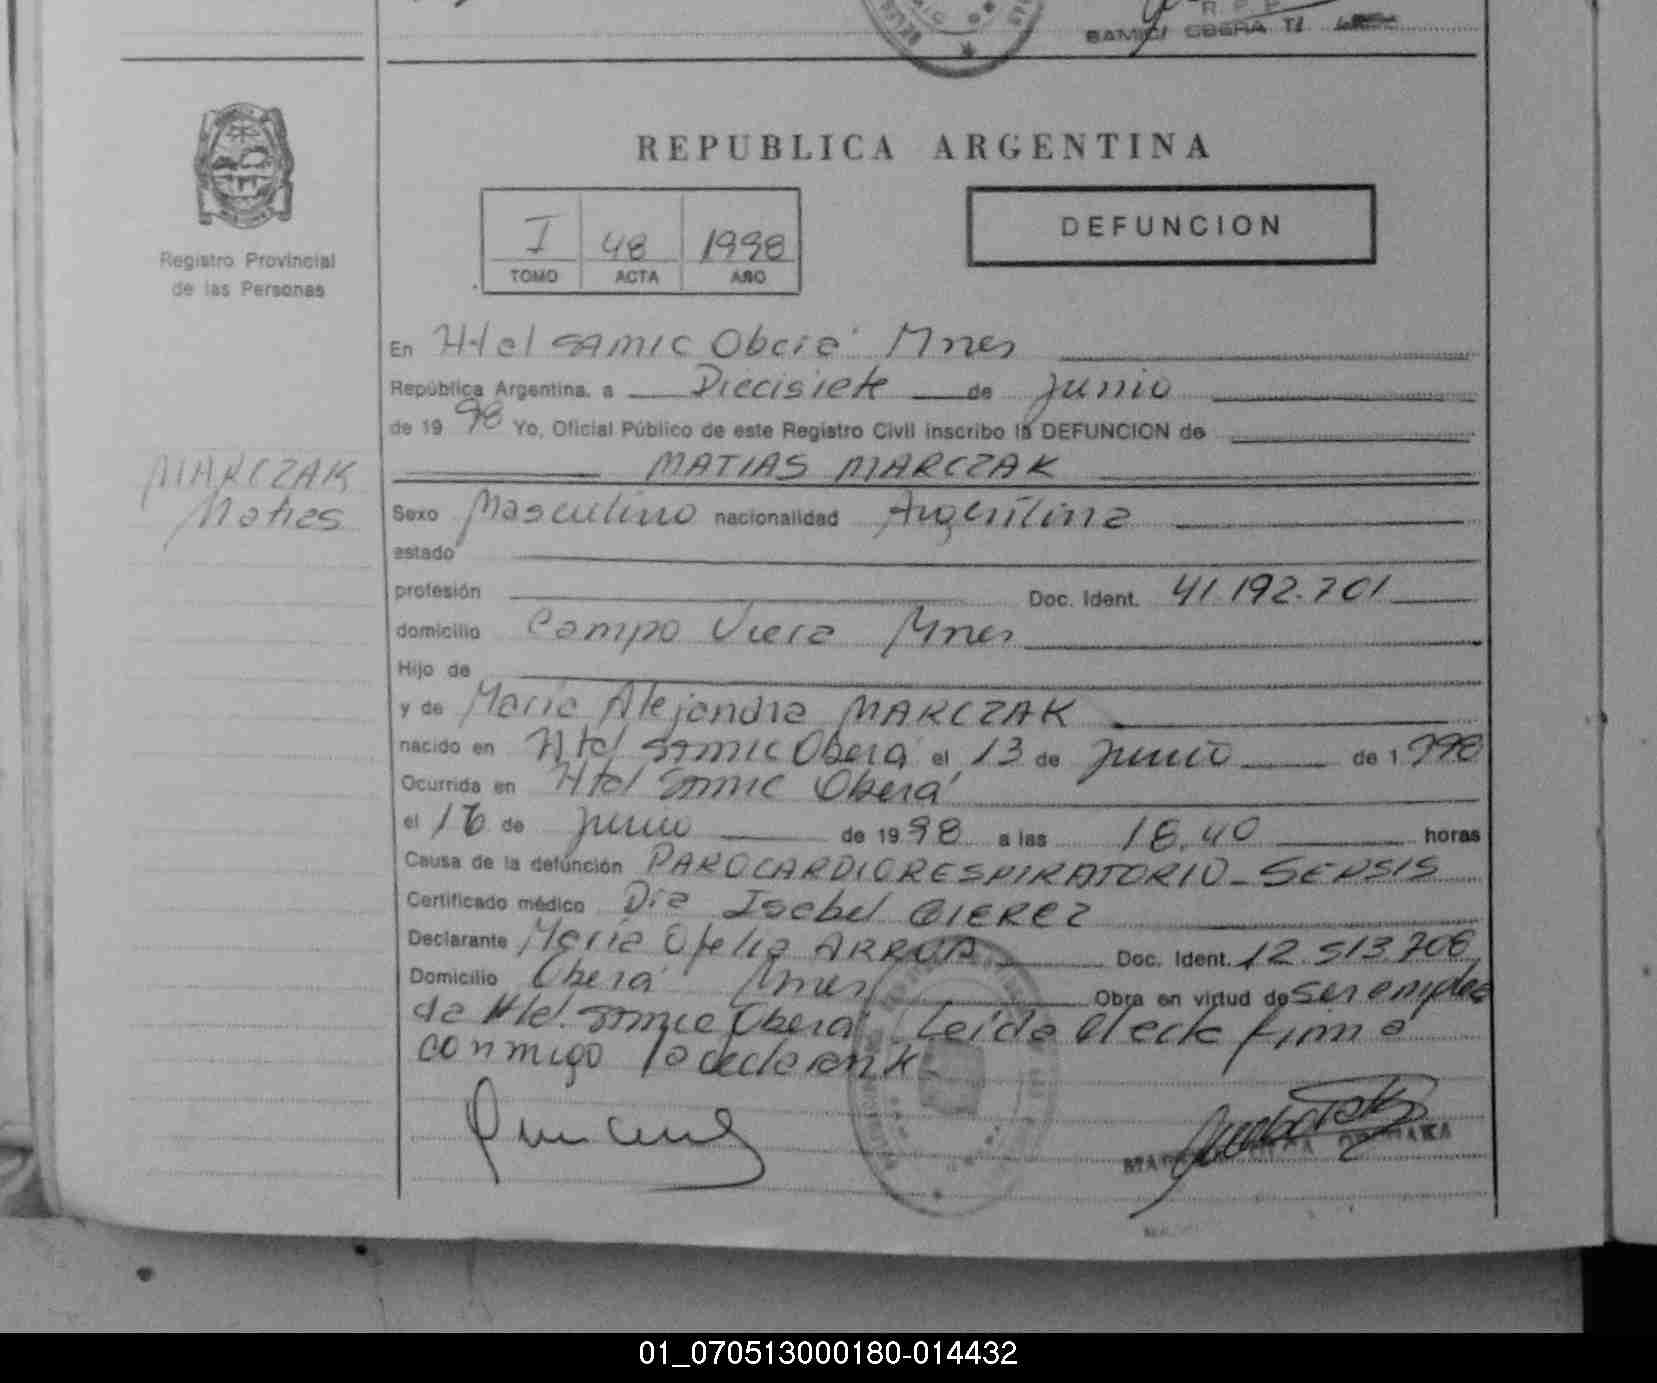 SAMIC/ OBERA
REPUBLICA ARGENTINA
I 48 1998
TOMO ACTA AÑO
DEFUNCION
Registro Provincial
de las Personas
En Htal SAMIC Oberá Mnes
República Argentina, a Diecisiete de Junio
de 19 98 Yo, Oficial Público de este Registro Civil inscribo la DEFUNCION de
MATIAS MARCZAK
MARCZAK
Matias
Sexo Masculino nacionalidad Argentina
estado
profesión Doc. Ident. 41.192.701
domicilio Campo Viera Mnes
Hijo de
y de María Alejandra MARCZAK
nacido en Htal SAMIC Oberá el 13 de Junio de 1 998
Ocurrida en Htal Samic Oberá
el 16 de Junio de 19 98 a las 18,40 horas
Causa de la defunción PAROCARDIORESPIRATORIO - SEPSIS
Certificado médico Dra Isabel
Declarante María Ofelia ARRUA Doc. Ident. 12.513.708
Domicilio Oberá Mnes Obra en virtud de ser emplea
da Htal. Samic Oberá Leida el acta firma
conmigo la declarante
01_070513000180-014432